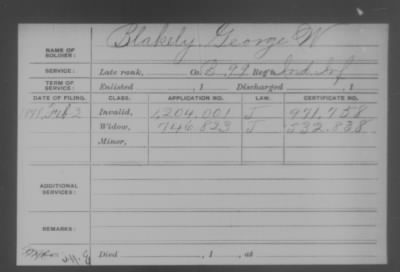 NAME OF SOLDIER: Blakely, George W
SERVICE: Late rank, Co. B, 99 Reg't Ind. Inf
TERM OF SERVICE: Enlisted , 1 Discharged , 1
DATE OF FILING. CLASS. APPLICATION NO. LAW. CERTIFICATE NO.
Feb 2 Invalid, 1,204,001 J 971,758
Widow, 746,823 J 532,838
Minor,
ADDITIONAL SERVICES:
REMARKS:
Died , 1 , at